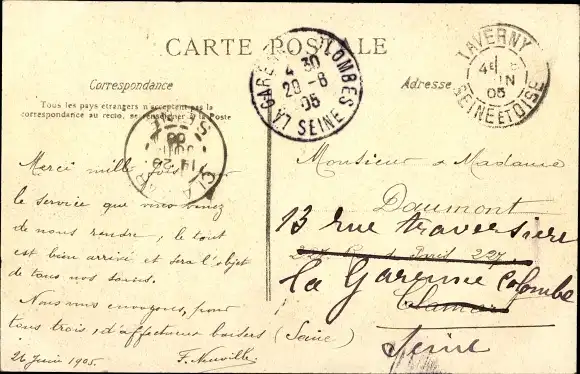 CARTE POSTALE
Correspondance
Tous les pays étrangers n'acceptent pas la
correspondance au recto, se renseigner à la Poste
Adresse
LA GARENNE COLOMBES
4 30
29-6
05
SEINE
TAVERNY
05
SEINE ET OISE
CLAMART
SEINE
Merci mille fois pour
le service que vous venez
de nous rendre, le tout
est bien arrivé et sera l'objet
de tous nos soins.
Nous vous envoyons, pour
tous trois, d'affectueux baisers
26 Juin 1905. F. Neuville.
Monsieur & Madame
Daumont
13 rue traversière
227
la Garenne Colombe
Clamart
(Seine)
Seine